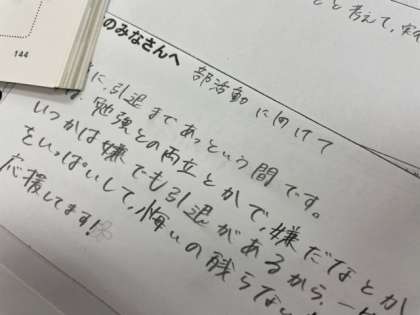 144
のみなさんへ 部活動に向けて
に、引退まであっという間です。
勉強との両立とかで、嫌だなとか
いつかは嫌でも引退があるから、一
をいっぱいして、悔いの残らない
応援してます!
と考えて、実